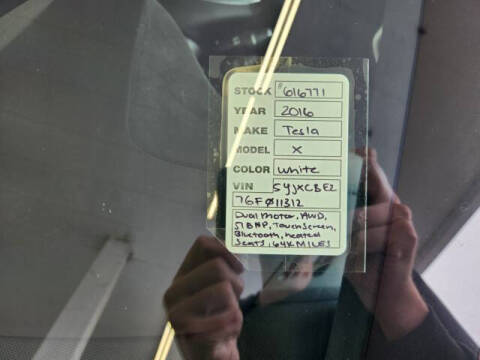 STOCK #616771
YEAR 2016
MAKE Tesla
MODEL X
COLOR white
VIN 5YJXCBE2
7GFØ11312
Dual Motor, AWD,
518HP, Touch Screen,
Bluetooth, heated
Seats, 64K MILES